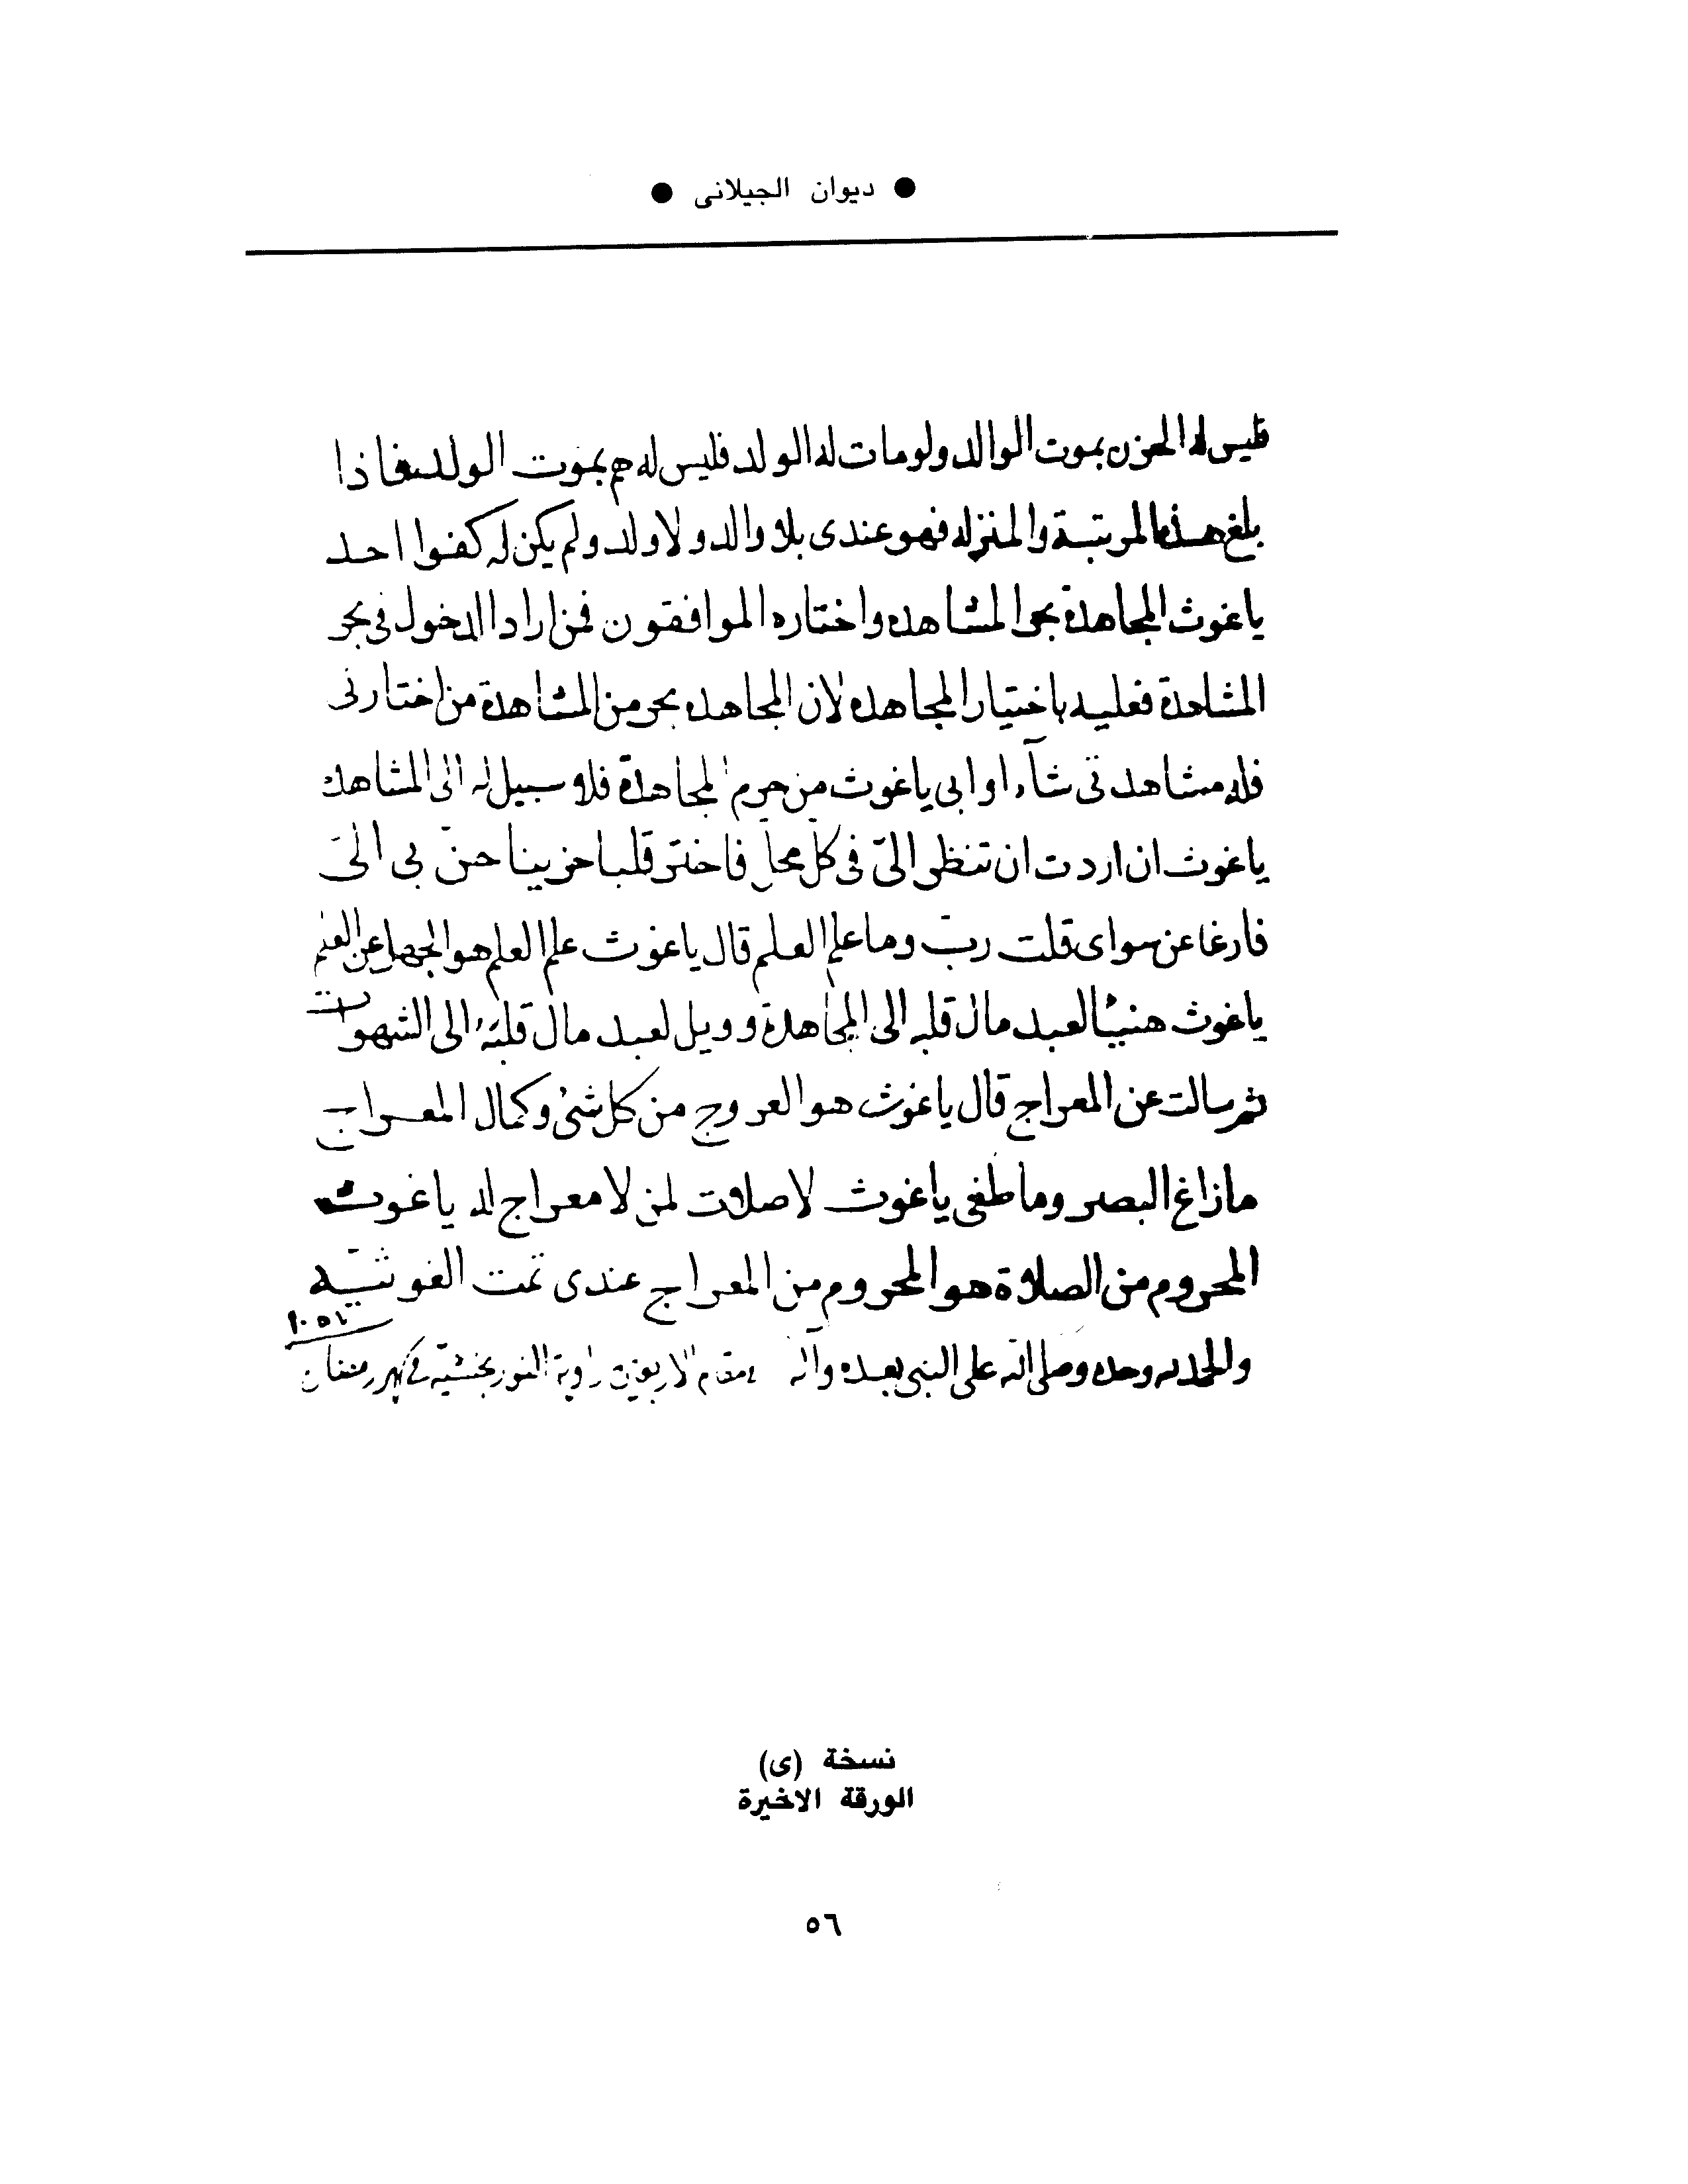 ● ديوان الجيلانى ●
فليس له الحزن بموت الوالد ولو مات له الولد فليس له هم بموت الولد فاذا
بلغ هذه المرتبة والمنزله فهو عندى بلا والد ولا ولد ولم يكن له كفوا احد
ياغوث المجاهدة بحر المشاهده واختاره الموافقون فمن اراد الدخول فى بحر
المشاهدة فعليه باختيار المجاهده لان المجاهده بحر من المشاهدة من اختارنى
فله مشاهدتى شآء او ابى ياغوث من حرم المجاهدة فلا سبيل له الى المشاهدة
ياغوث ان اردت ان تنظر الىّ فى كل محل فاختر قلبا حزينا حن بى الىّ
فارغا عن سواى قلت ربّ وما علم العلم قال ياغوث علم العلم هو الجهل عن العلم
ياغوث هنيئا لعبد مال قلبه الى المجاهدة وويل لعبد مال قلبه الى الشهوات
ثم سالت عن المعراج قال ياغوث هو العروج من كل شئ وكمال المعراج
مازاغ البصر وما طغى ياغوث لا صلات لمن لا معراج له ياغوث
المحروم من الصلاة هو المحروم من المعراج عندى تمت الغوثيّه
والحمد لله وحده وصلى الله على النبى بعده وآله مقام الاربعين زاوية النوربخشيّه فى
نسخة (ى)
الورقة الاخيرة
٥٦